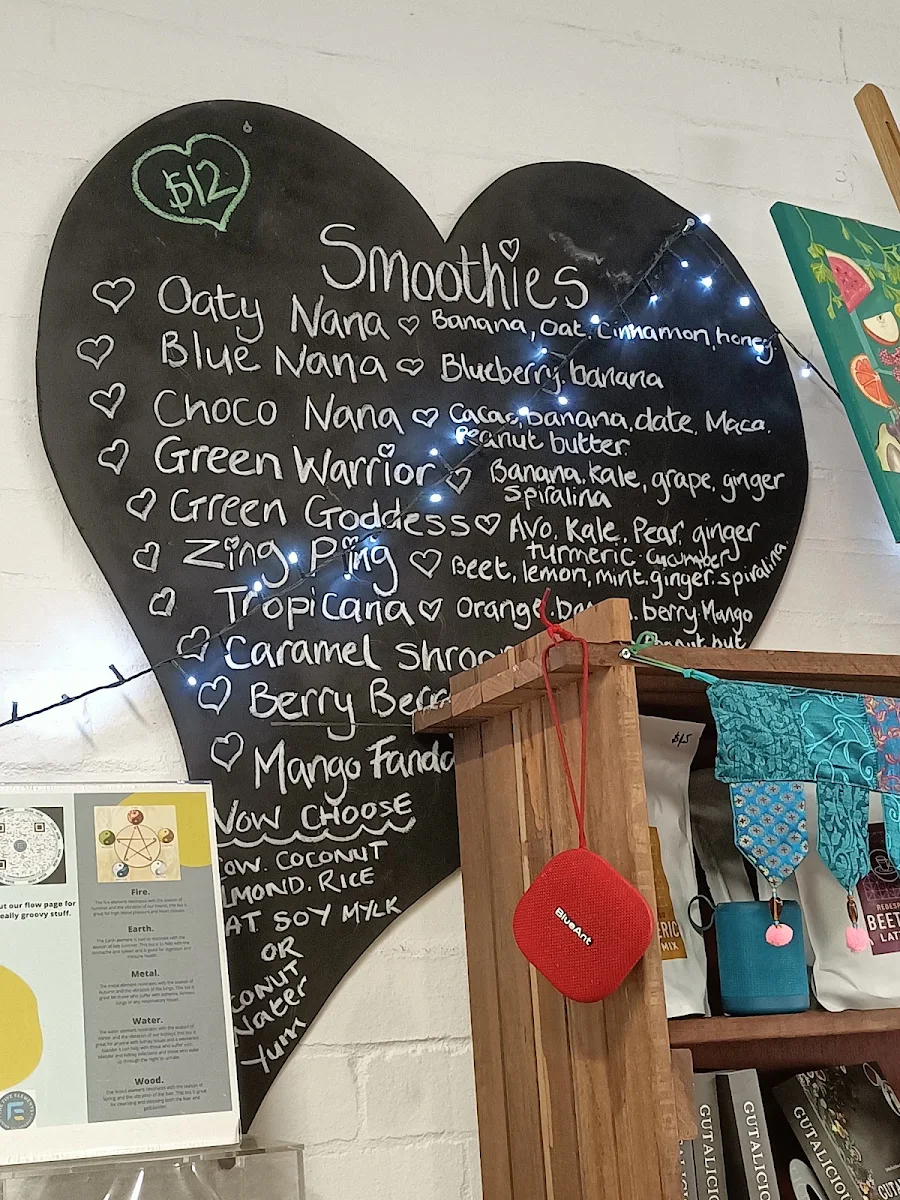 $12
Smoothies
Oaty Nana Banana, Oat, Cinnamon, honey
Blue Nana Blueberry, banana
Choco Nana Cacao, banana, date, Maca,
Peanut butter
Green Warrior Banana, Kale, grape, ginger
Spiralina
Green Goddess Avo, Kale, Pear, ginger
turmeric cucumber
Zing Ping Beet, lemon, mint, ginger, spiralina
Tropicana Orange, berry, Mango
Caramel Shroo
Peanut but
Berry Ber
Mango Fanda
NOW CHOOSE
OW. COCONUT
LMOND. RICE
AT SOY MYLK
OR
CONUT
Water
Yum
out our flow page for
eally groovy stuff.
Fire.
Earth.
Metal.
Water.
Wood.
BlueAnt
$15
ERIC
MIX
BEET
LAT
GUTALICIO
GUTALICIO
GUTALICIO